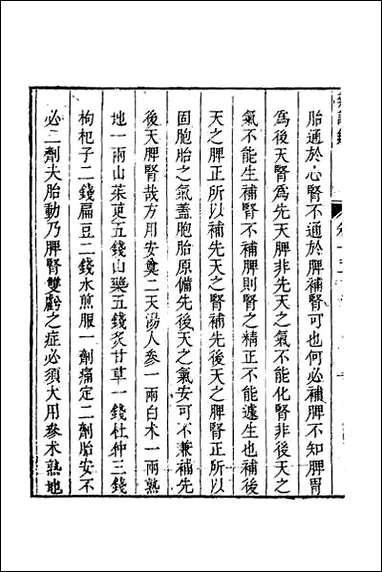 胎通於心腎不通於脾補腎可也何必補脾不知脾胃
為後天腎為先天脾非先天之氣不能化腎非後天之
氣不能生補腎不補脾則腎之精正不能遽生也補後
天之脾正所以補先天之腎補先後天之脾腎正所以
固胞胎之氣蓋胞胎原備先後天之氣安可不兼補先
後天脾腎哉方用安奠二天湯人參一兩白术一兩熟
地一兩山茱萸五錢山藥五錢炙甘草一錢杜仲三錢
枸杞子二錢扁豆二錢水煎服一劑痛定二劑胎安不
必二劑夫胎動乃脾腎雙虧之症必須大用參术熟地